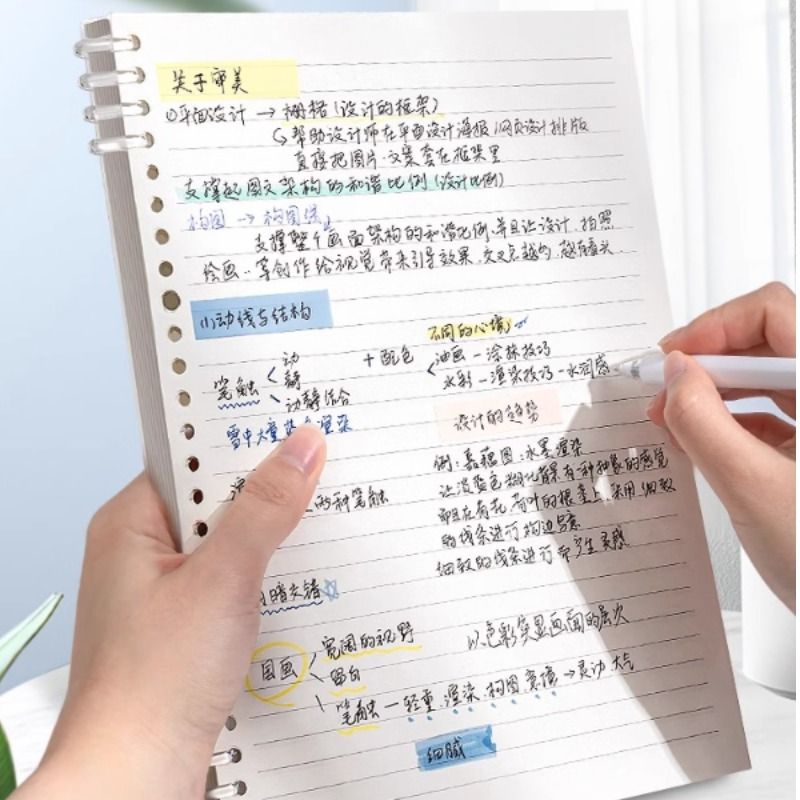 关于审美
①平面设计 → 栅格(设计的框架)
↳帮助设计师在平面设计海报、网页设计排版
直接把图片、文案套在框架里
支撑起图文架构的和谐比例(设计比例)
构图 → 构图线
支撑整个画面架构的和谐比例、并且让设计、拍照
绘画、等创作给视觉带来引导效果、交叉点越多、越有看头
(1)动线与结构
不同的心境
动
+配色
油画-涂抹技巧
笔触
静
水彩-渲染技巧-水润感
动静结合
设计的趋势
雪中大量 渲染
例:嘉藕图:水墨渲染
让淡蓝色 背景有一种抽象的感觉
的两种笔触
荷叶的根茎上采用细致
的线条进行勾边
细致的线条进行 灵感
暗交错
以色彩突显画面的层次
宽阔的视野
国画
留白
笔触-轻重、渲染、构图、意境→灵动大气
细腻